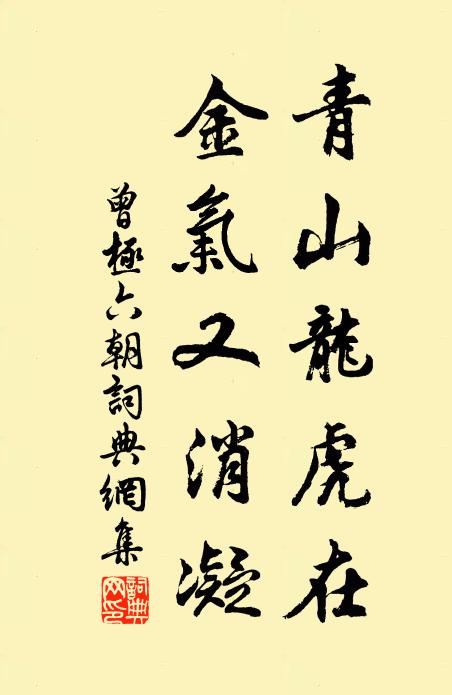 青山龍虎在
金氣又消凝
曾極六朝詞典網集
詞典網印